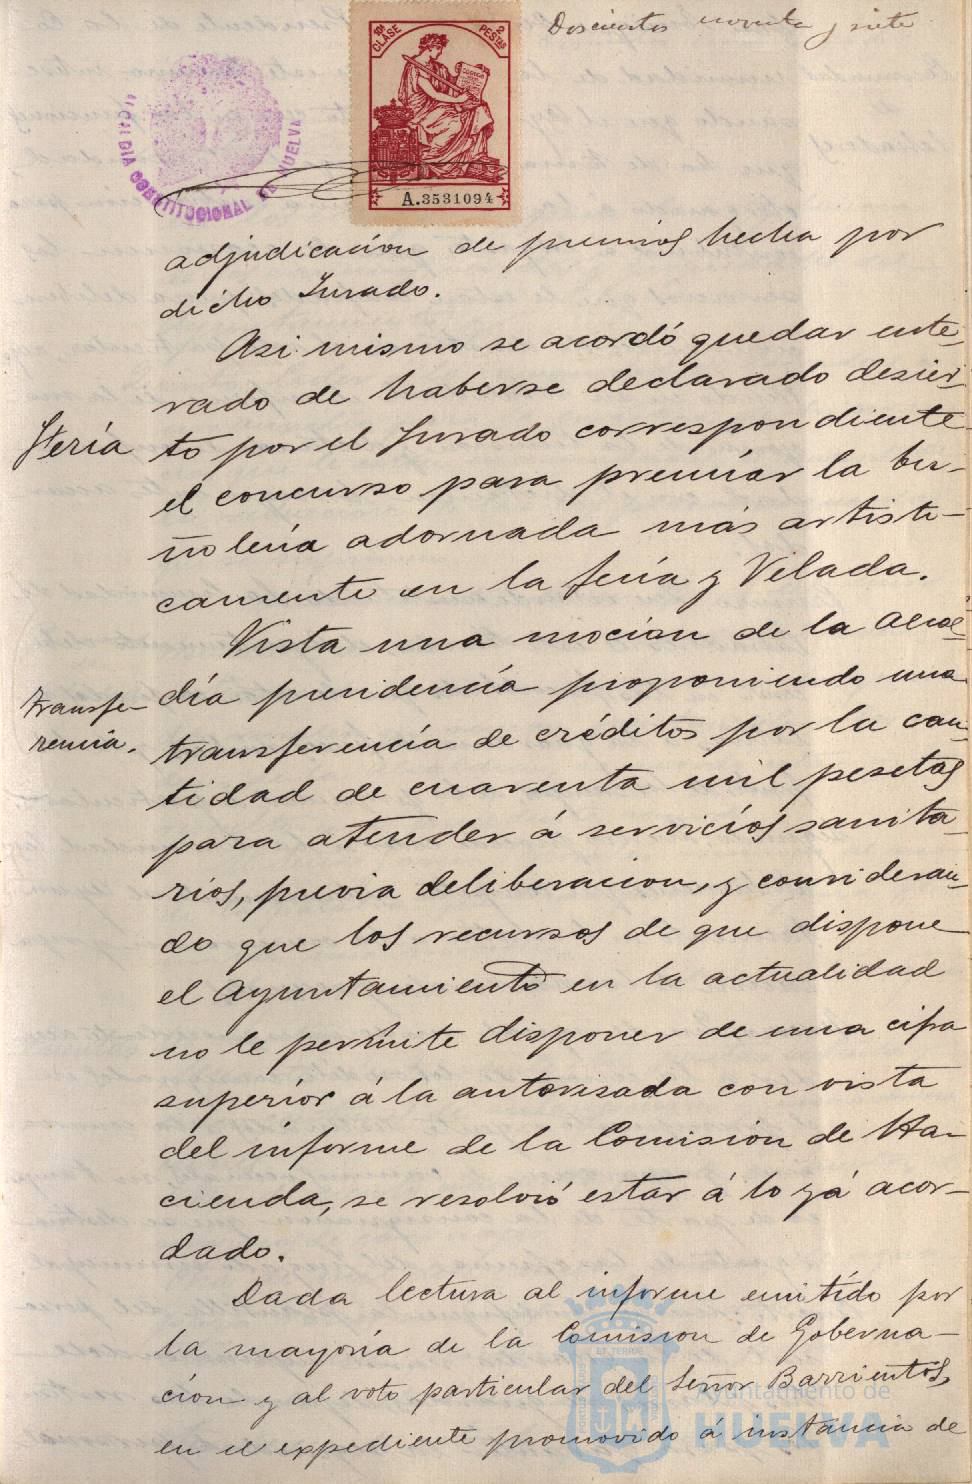 Doscientos noventa y siete
10ª CLASE
2 PESTAS
A.3531094
ALCALDIA CONSTITUCIONAL DE HUELVA
adjudicación de premios hecha por
dicho Jurado.
Asi mismo se acordó quedar ente-
rado de haberse declarado desier-
Feria
to por el Jurado correspondiente
el concurso para premiar la bu-
ñolería adornada más artisti-
camente en la feria y Velada.
Vista una mocion de la Alcal-
Transfe-
rencia.
día presidencia proponiendo una
transferencia de créditos por la can-
tidad de cuarenta mil pesetas
para atender á servicios sanita-
rios, previa deliberacion, y consideran-
do que los recursos de que dispone
el Ayuntamiento en la actualidad
no le permite disponer de una cifra
superior á la autorisada con vista
del informe de la Comision de Ha-
cienda, se resolvió estar á lo yá acor-
dado.
Dada lectura al informe emitido por
la mayoría de la Comision de Goberna-
cion y al voto particular del Señor Barrientos,
en el expediente promovido á instancia de
Ayuntamiento de
HUELVA